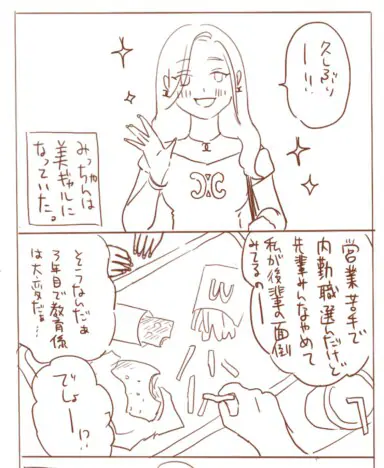 久しぶり
ー!!
みっちゃんは
美ギャルに
なっていた。
営業苦手で
内勤職選んだけど
先輩みんなやめて
私が後輩の面倒
みてるのー
そうなんだぁ
3年目で教育係
は大変だぁ…
でしょー!?